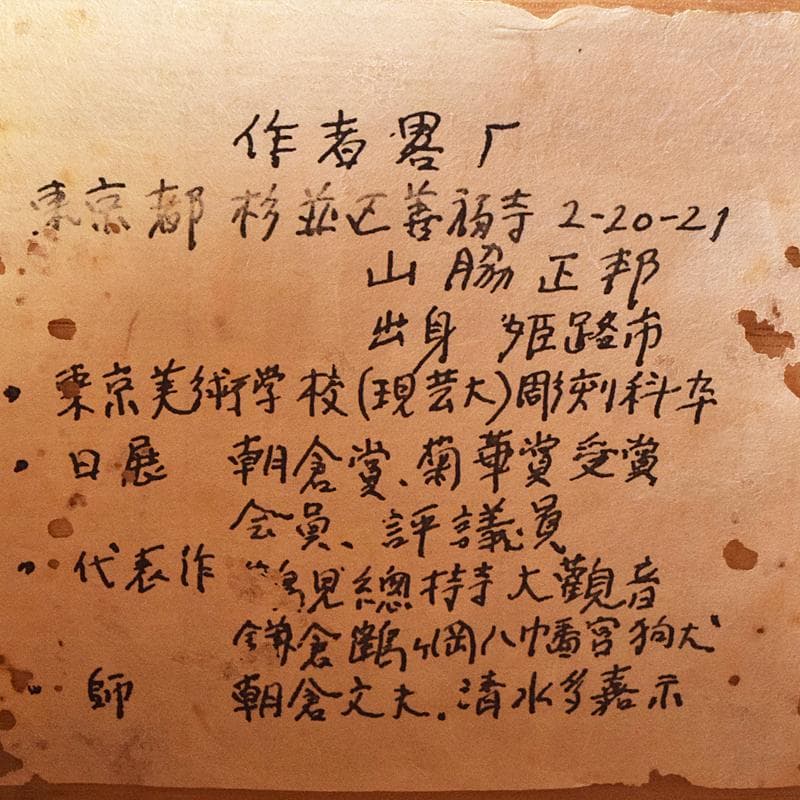 作者畧厂
東京都杉並区善福寺2-20-21
山脇正邦
出身 姫路市
・東京美術学校(現芸大)彫刻科卆
・日展 朝倉賞、菊華賞受賞
会員、評議員
・代表作 鶴見總持寺大觀音
鎌倉鶴ヶ岡八幡宮狛犬
・師 朝倉文夫.清水多嘉示